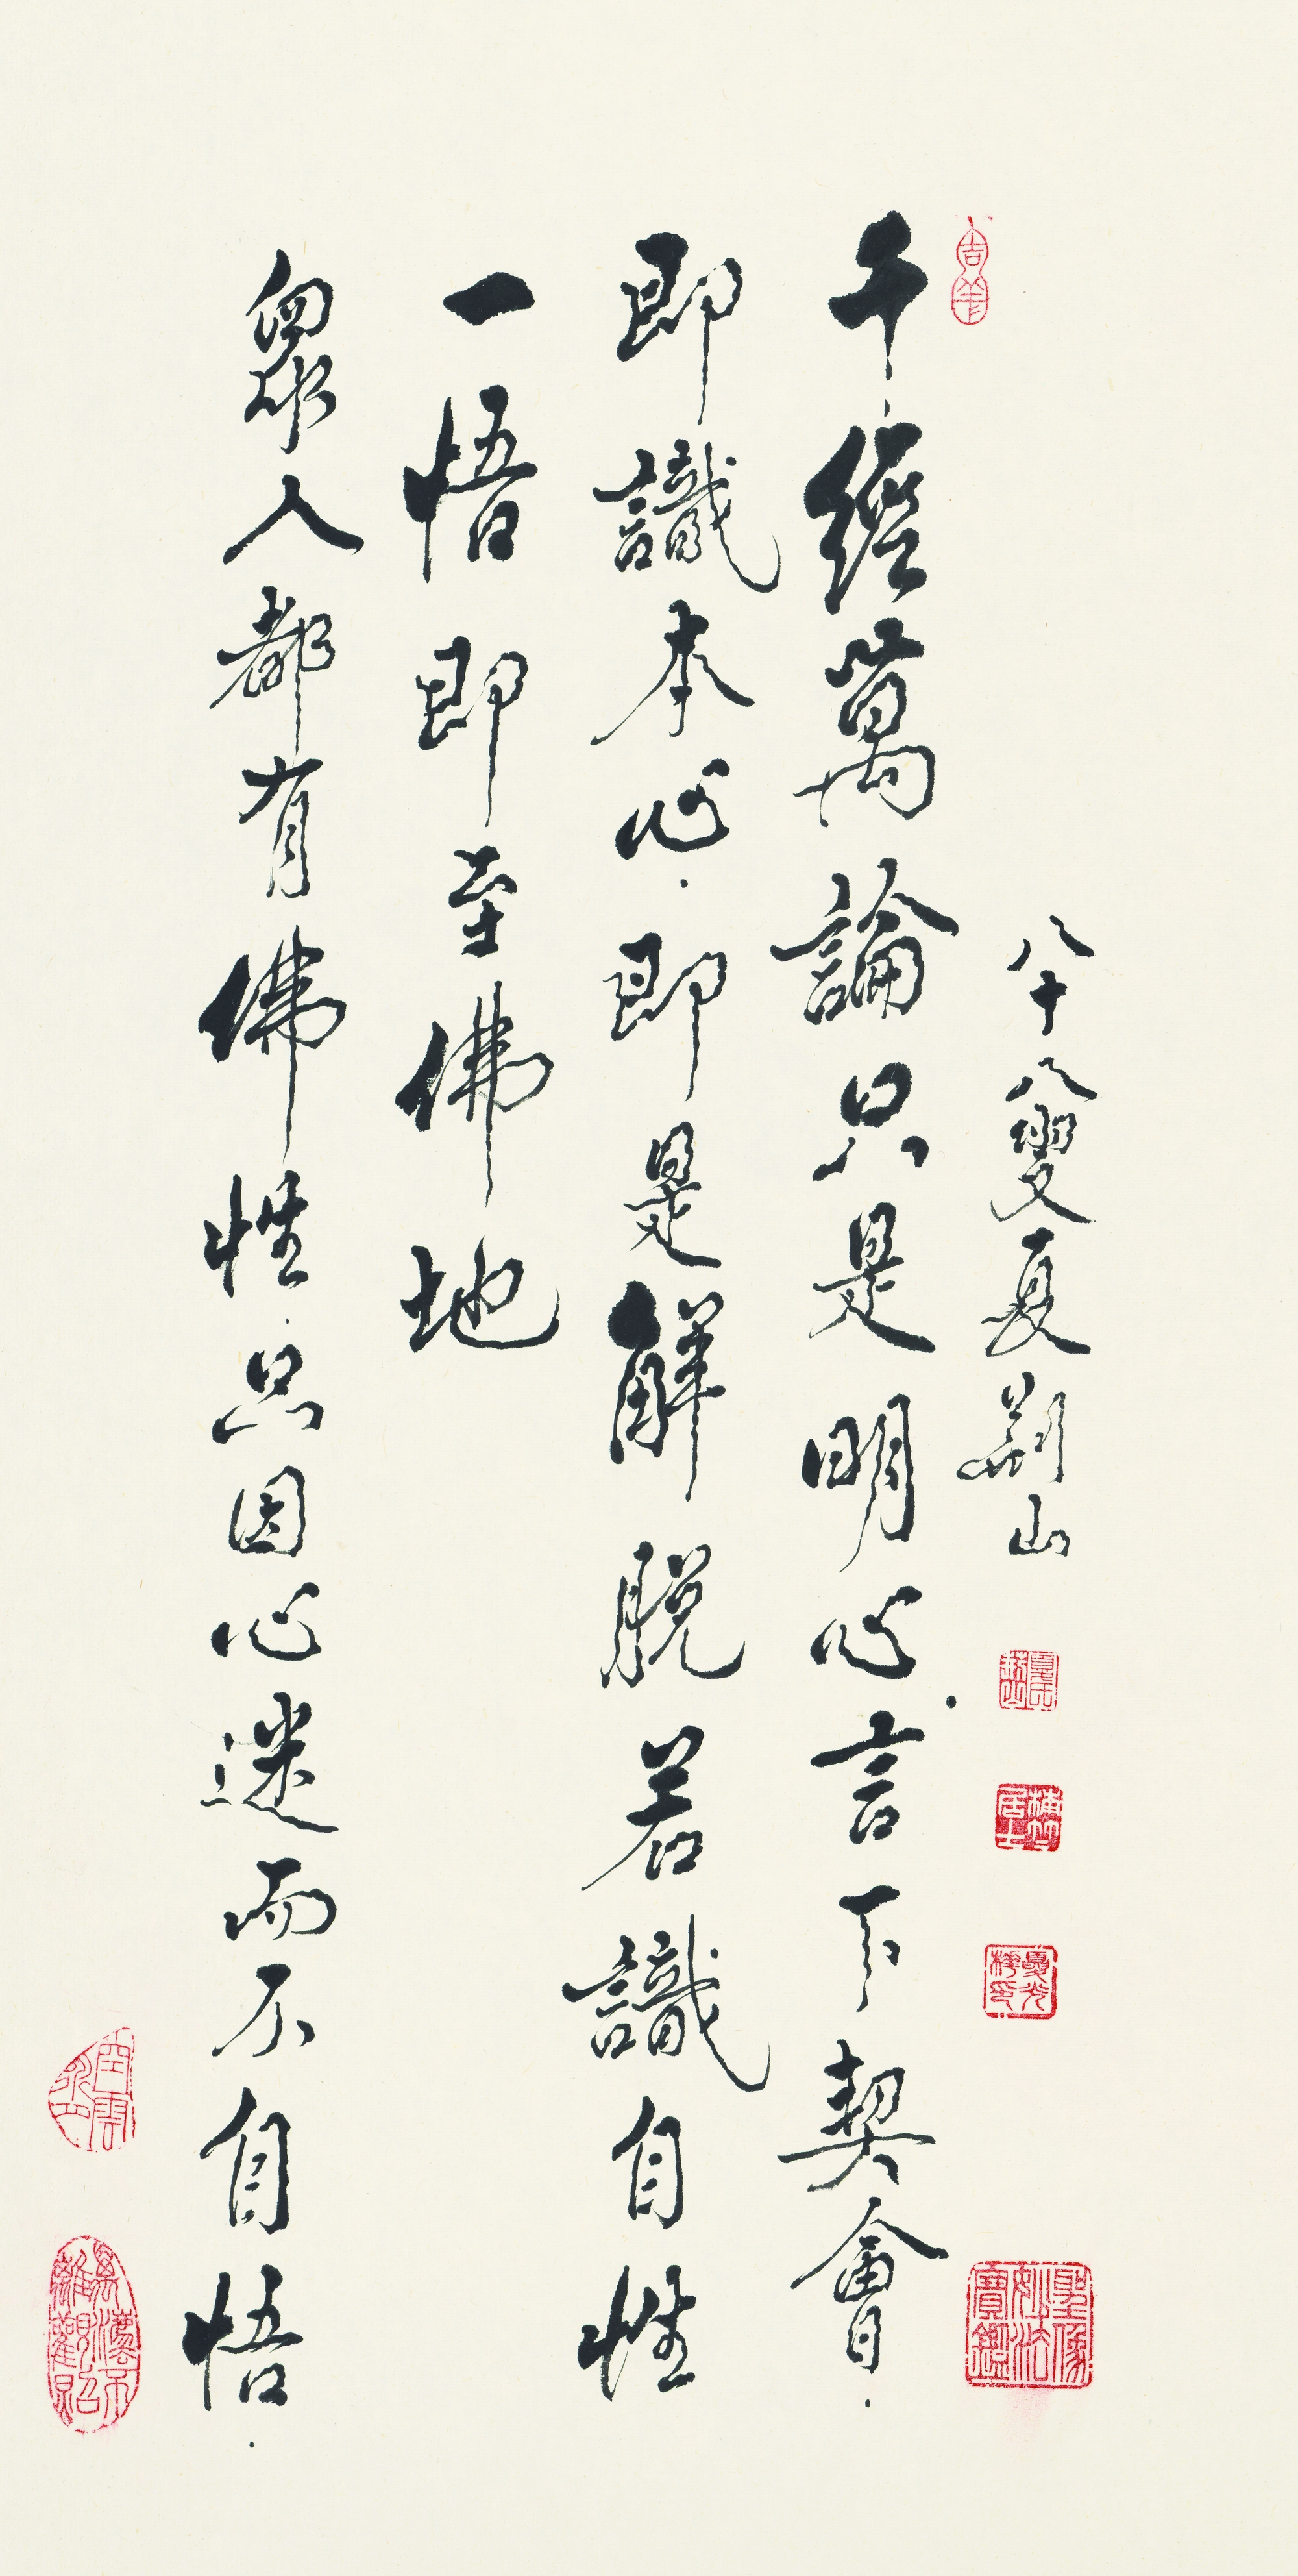 八十八叟夏荆山
千經萬論只是明心.言下契會.
即識本心.即是解脱若識自性
一悟即至佛地
眾人都有佛性.只因心迷而不自悟.
聖像妙法寶鑑